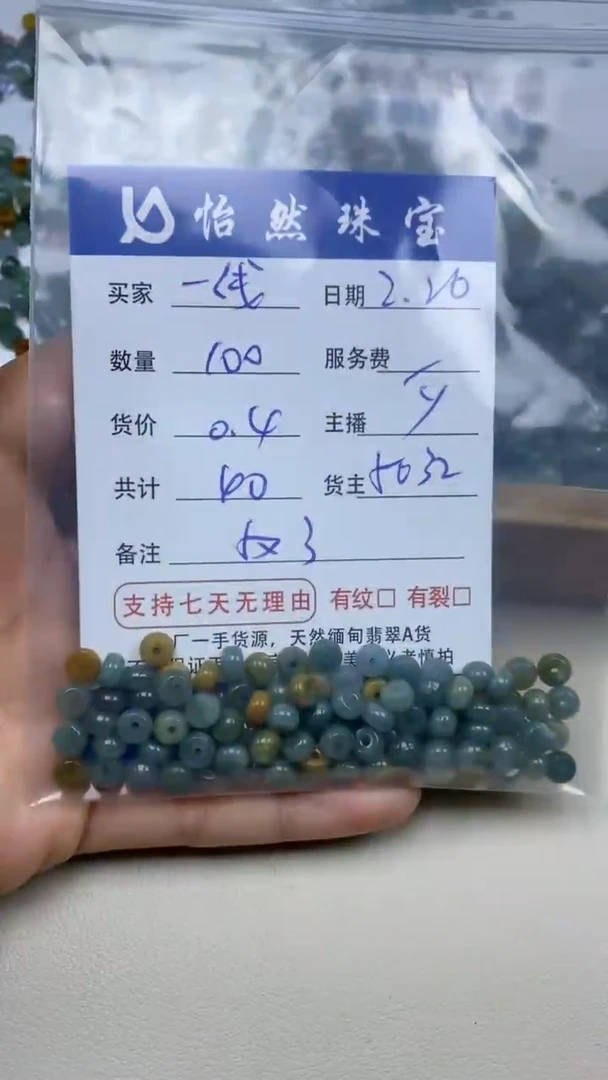 怡然珠宝
买家 一线 日期 2.26
数量 100 服务费
货价 0.4 主播
共计 40 货主
备注
支持七天无理由 有纹□ 有裂□
厂一手货源，天然缅甸翡翠A货
者慎拍